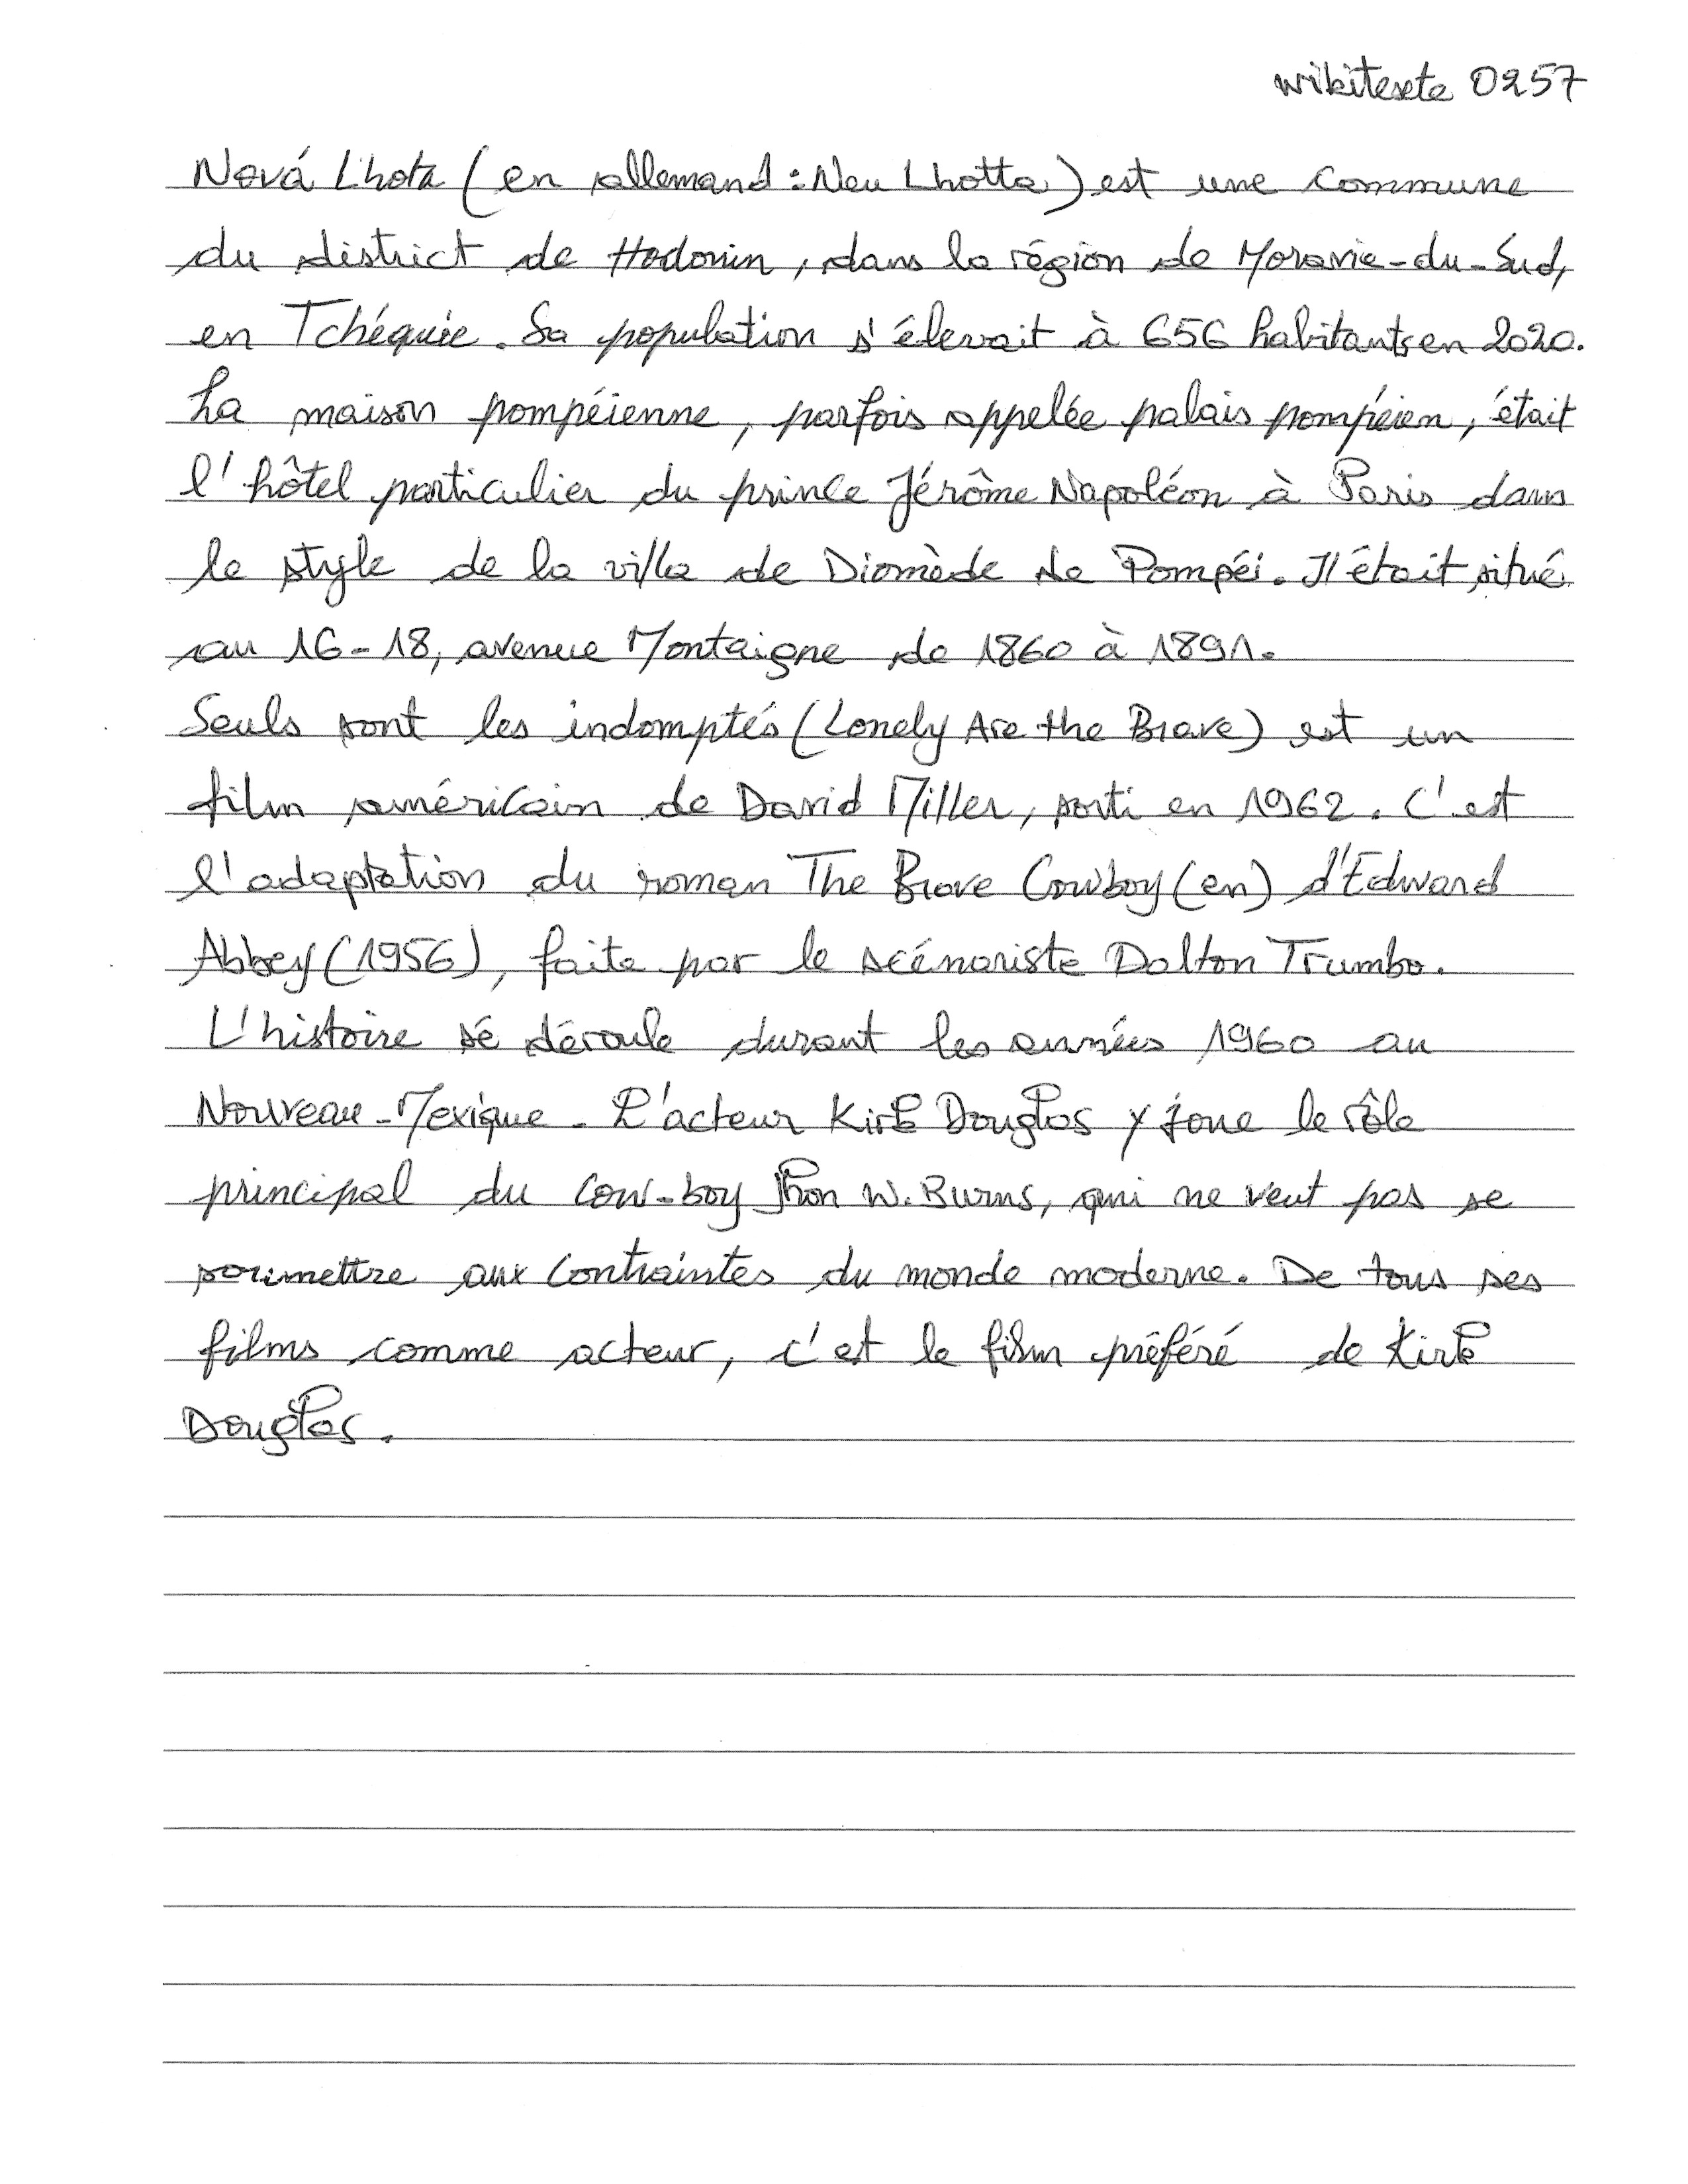 wikitexte 0257
Nová Lhota (en allemand : Neu Lhotta) est une commune
du district de Hodonín, dans la région de Moravie-du-Sud,
en Tchéquie. Sa population s'élevait à 656 habitants en 2020.
La maison pompéienne, parfois appelée palais pompéien, était
l'hôtel particulier du prince Jérôme Napoléon à Paris dans
le style de la villa de Diomède de Pompéi. Il était situé
au 16-18, avenue Montaigne de 1860 à 1891.
Seuls sont les indomptés (Lonely Are the Brave) est un
film américain de David Miller, sorti en 1962. C'est
l'adaptation du roman The Brave Cowboy (en) d'Edward
Abbey (1956), faite par le scénariste Dalton Trumbo.
L'histoire sé déroule durant les années 1960 au
Nouveau-Mexique. L'acteur Kirk Douglas y joue le rôle
principal du cow-boy Jhon W. Burns, qui ne veut pas se
soumettre aux contraintes du monde moderne. De tous ses
films comme acteur, c'est le film préféré de Kirk
Douglas.